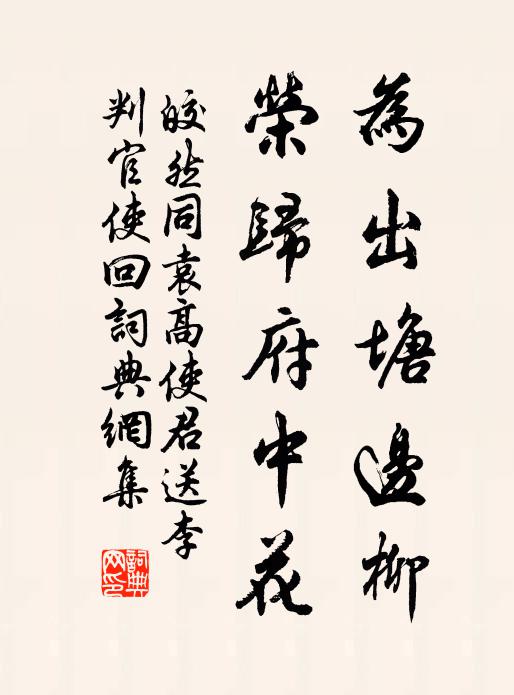 為出塘邊柳
榮歸府中花
皎然同袁高使君送李
判官使回詞典網集
詞典
网印